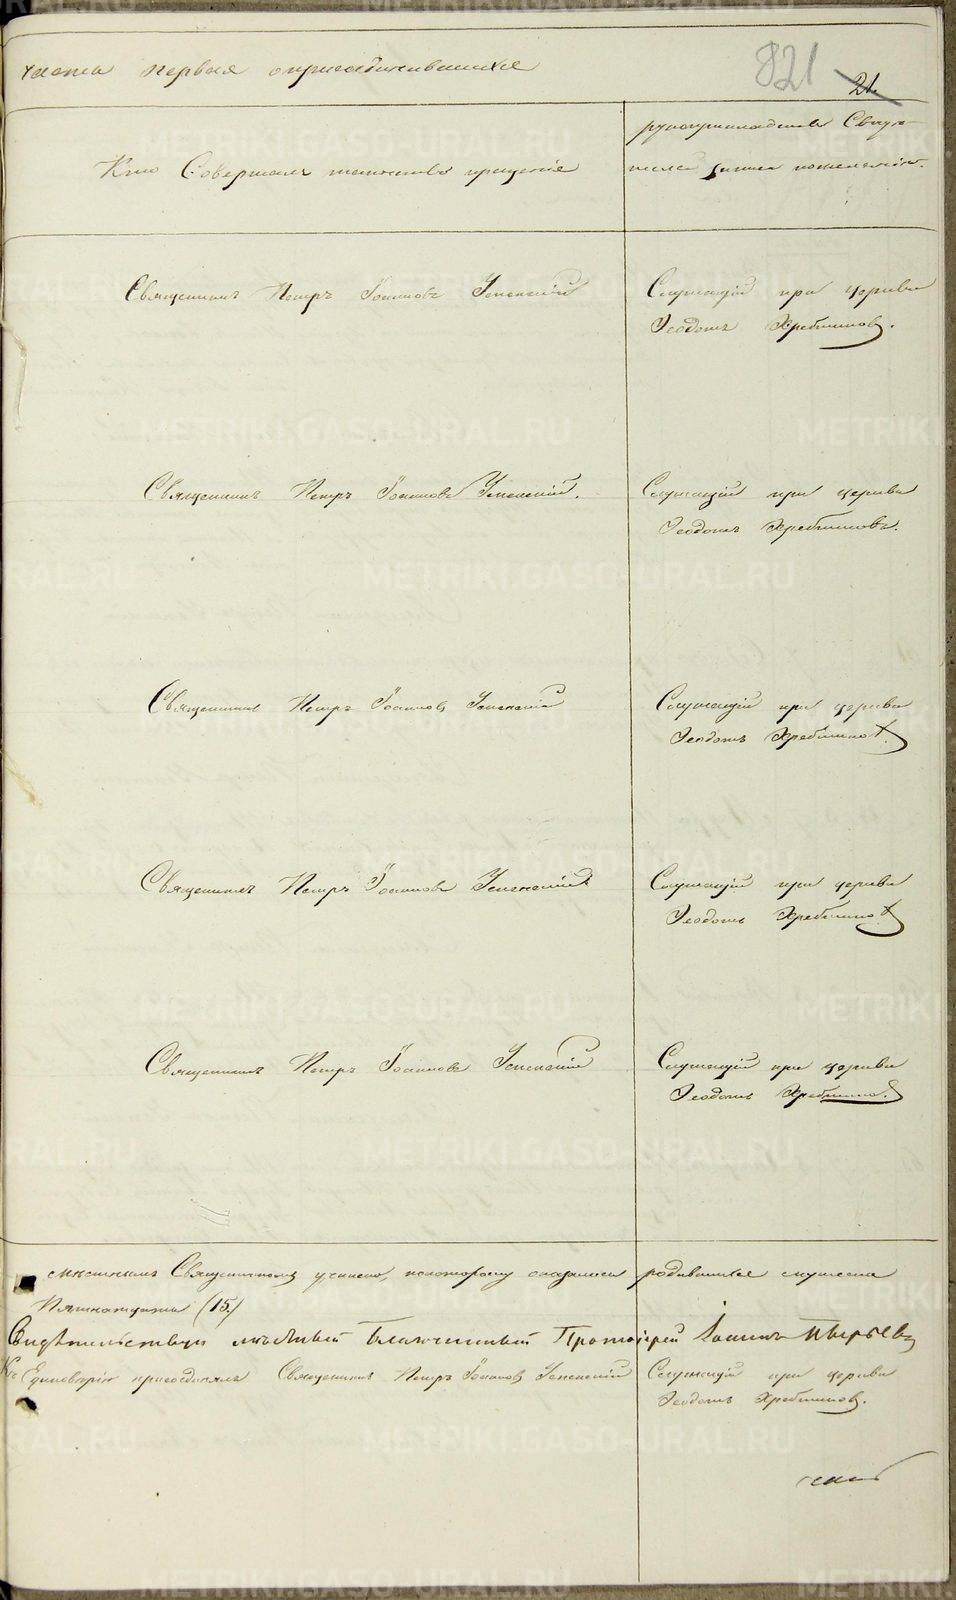 часть первая о присоединившихся
821
21.
рукоприкладство Свиде-
Кто Совершалъ таинство крещенія
телей записи пожеланію.
Священникъ Петръ Іоанновъ Успенскій
Служащій при церкви
Ѳеодотъ Хребтиковъ.
Священникъ Петръ Іоанновъ Успенскій.
Служащій при церкви
Ѳеодотъ Хребтиковъ.
Священникъ Петръ Іоанновъ Успенскій
Служащій при церкви
Ѳеодотъ Хребтиковъ
Священникъ Петръ Іоанновъ Успенскій
Служащій при церкви
Ѳеодотъ Хребтиковъ
Священникъ Петръ Іоанновъ Успенскій
Служащій при церкви
Ѳеодотъ Хребтиковъ.
Священникомъ учинено, по которому оказалось родившихся мужеска
Пятнатцать (15.)
Свидѣтельствуетъ мѣстный Благочинный Протоіерей Іоаннъ
Къ Единовѣрію присоединялъ Священникъ Петръ Іоанновъ Успенскій
Служащій при церкви
Ѳеодотъ Хребтиковъ.
METRIKI.GASO-URAL.RU